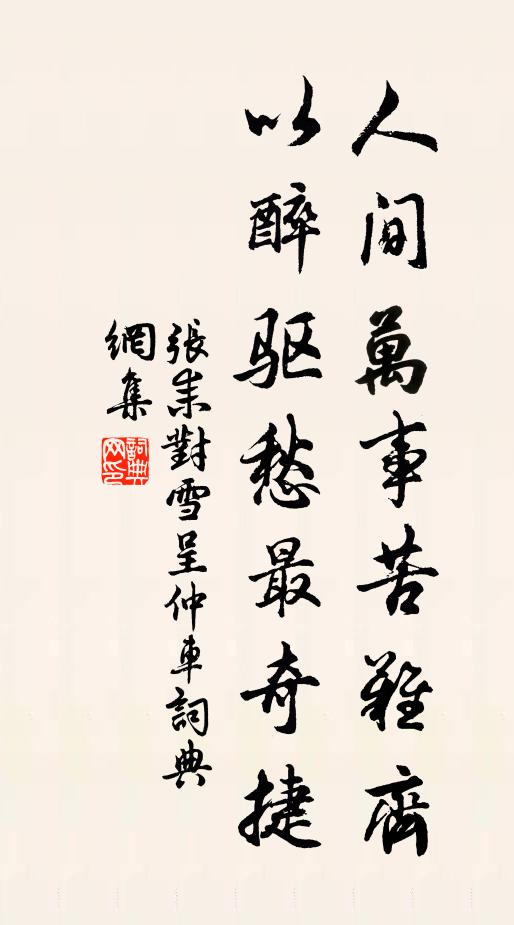 人间萬事苦難齊
以醉驱愁最奇捷
張耒對雪呈仲車詞典
網集
詞典网印